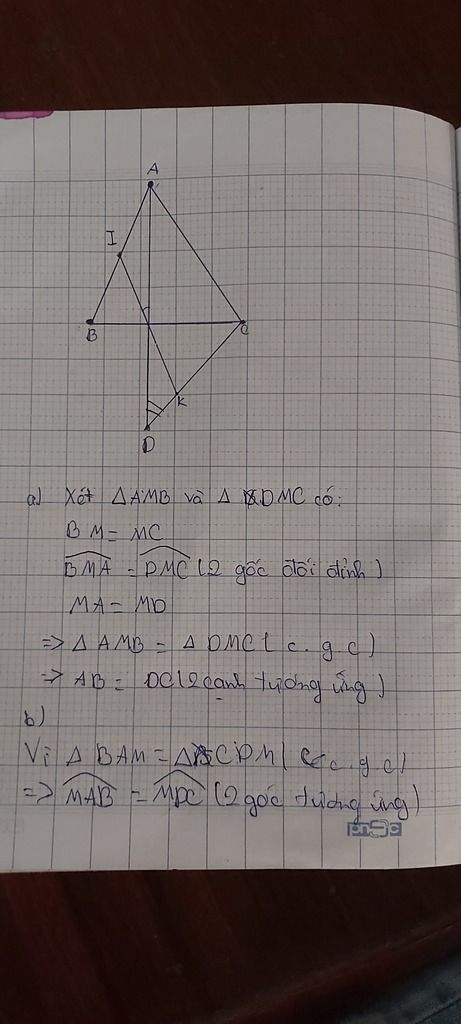 A
I
B
C
K
D
a) Xét ΔAMB và Δ DMC có:
BM = MC
BMA = DMC (2 góc đối đỉnh)
MA = MD
=> Δ AMB = Δ DMC ( c. g c)
=> AB = DC (2 cạnh tương ứng )
b)
Vì Δ BAM = Δ CDM ( c. g c)
=> MAB = MDC (2 góc tương ứng)